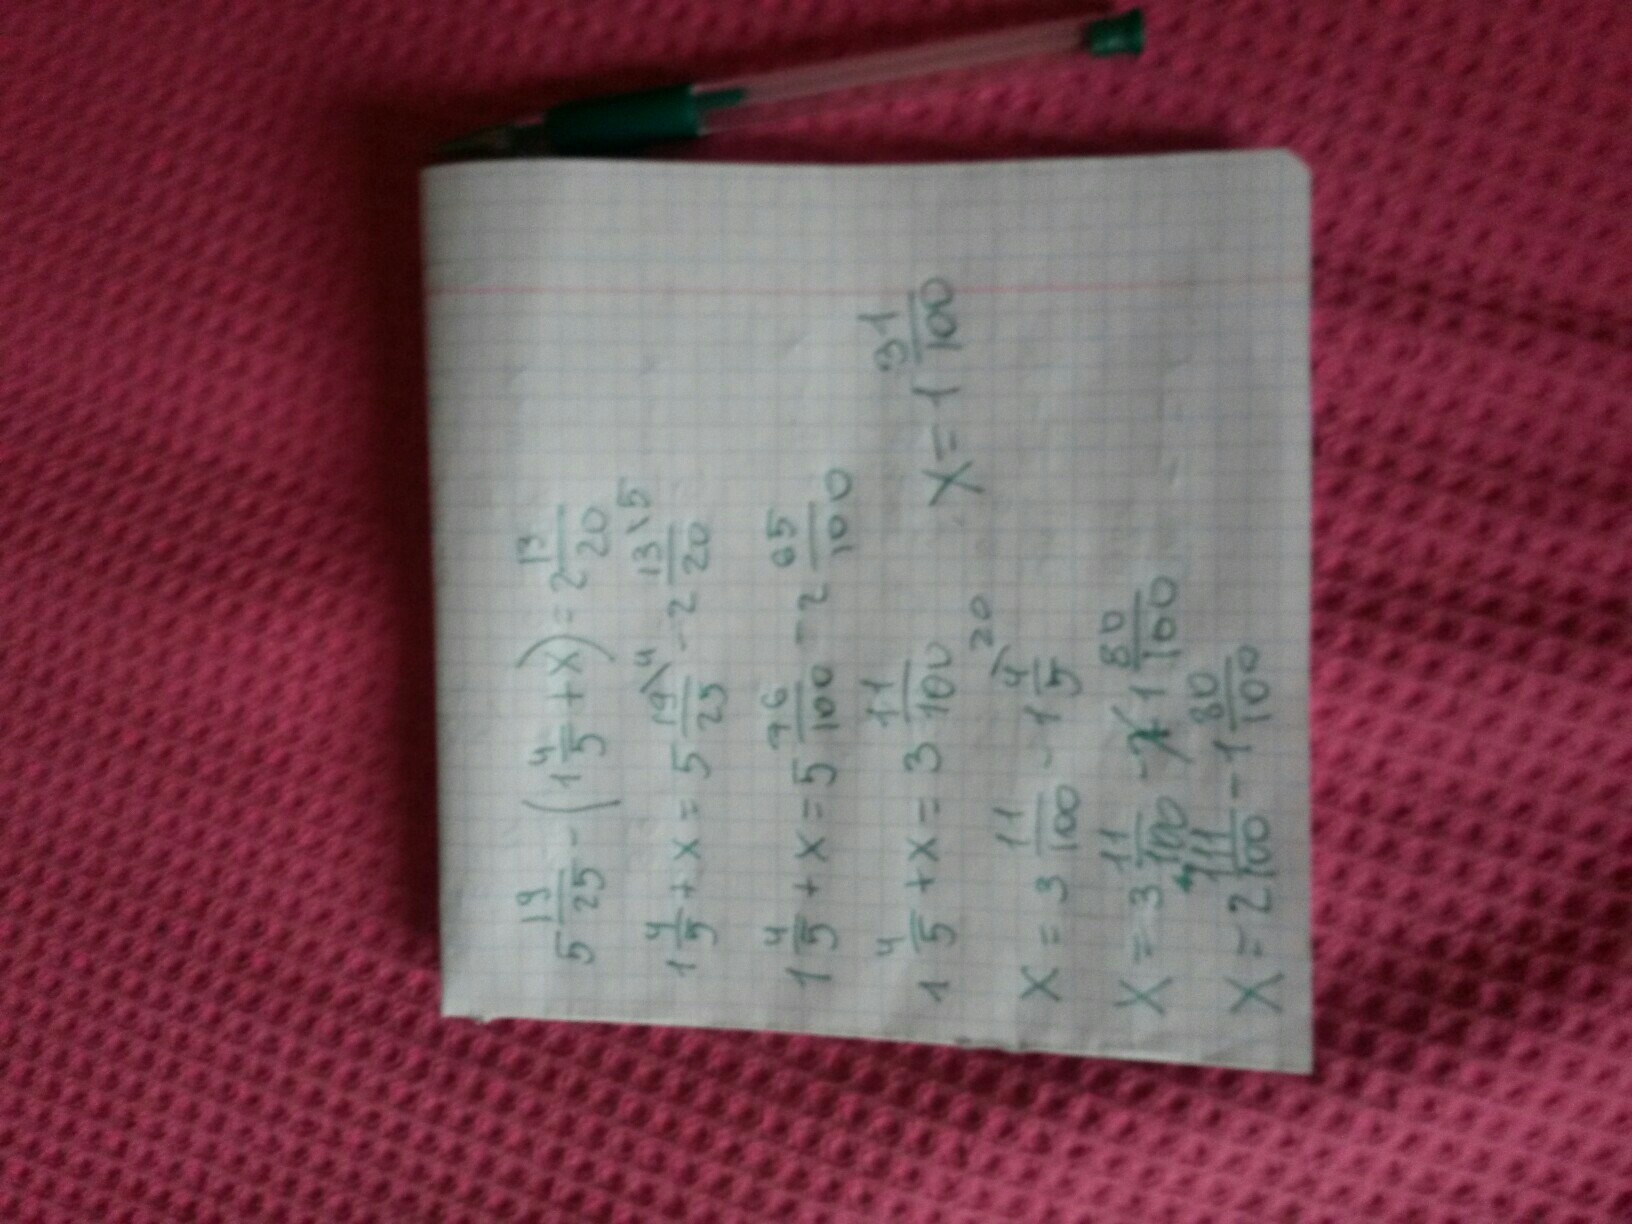 5 19/25 - (1 4/5 + x) = 2 13/20
1 4/5 + x = 5 19\4/25 - 2 13\5/20
1 4/5 + x = 5 76/100 - 2 65/100
1 4/5 + x = 3 11/100
x = 3 11/100 - 1 4\20/5
x = 3 11/100 - 1 80/100
x = 2 111/100 - 1 80/100
x = 1 31/100